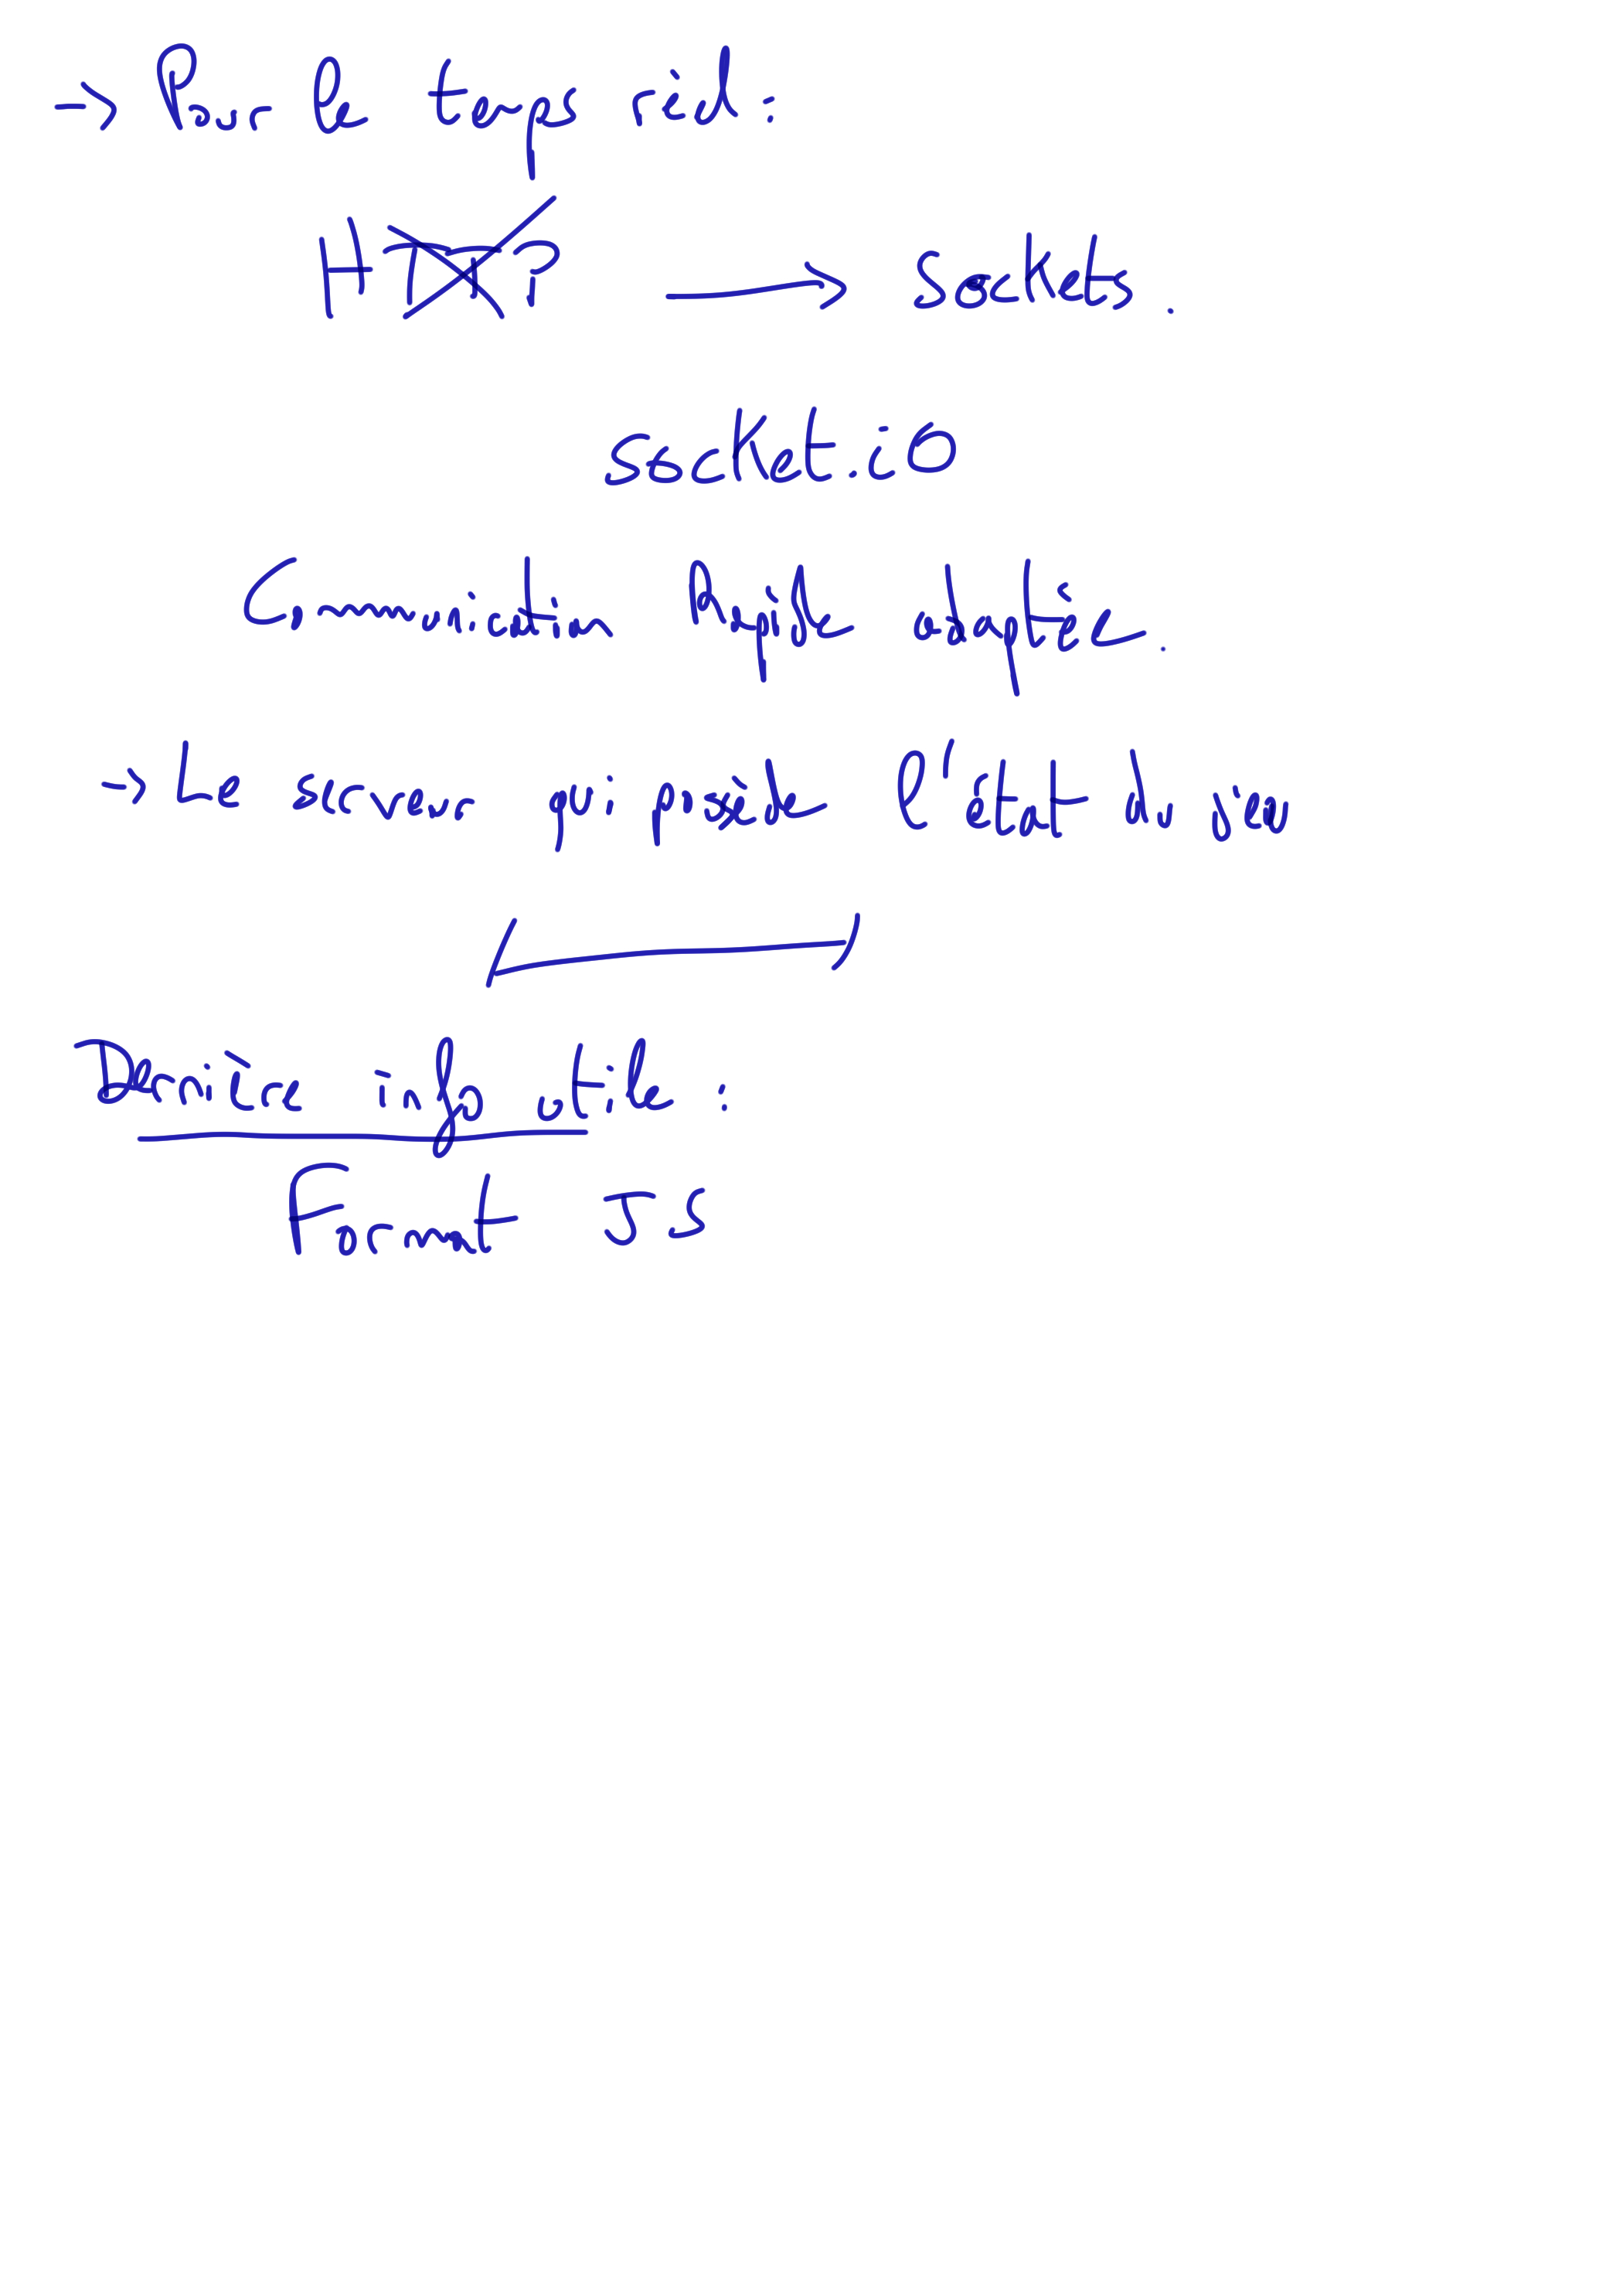 → Pour le temps réel :
HTTP → sockets.
socket.iO
Communication Rapide adaptée.
→ Le serveur qui possède l'état du jeu
Dernière info utile :
Format JS